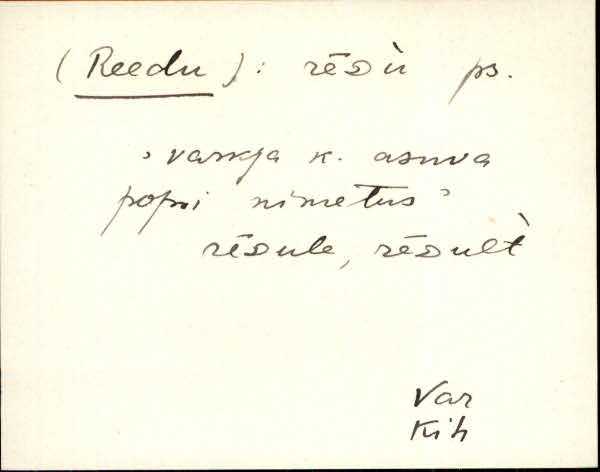 (Reedu): rēᴅù ps.
‚varnja k. asuva
popsi nimetus’
rēᴅule, rēᴅult̀
Var
Kih